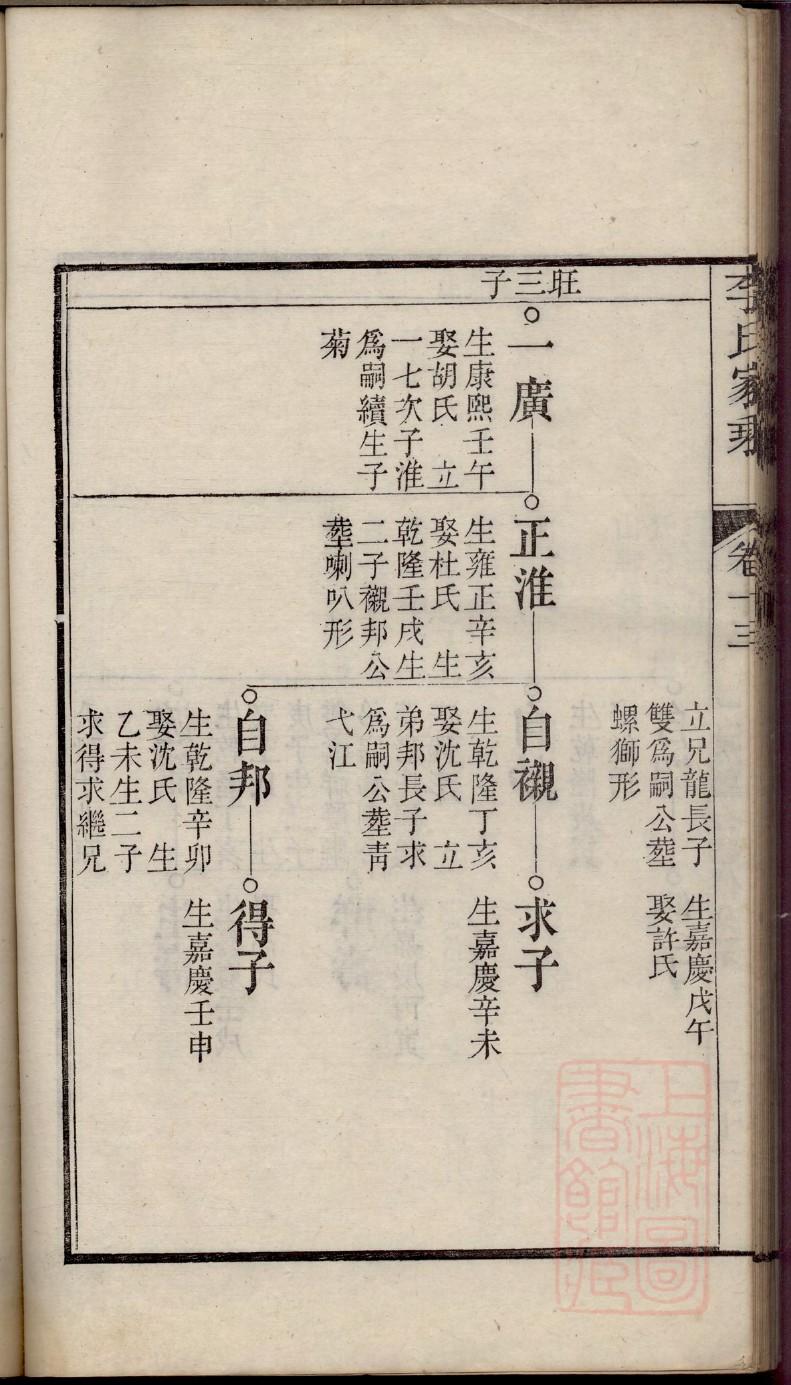 李氏家乘
卷十三
立兄龍長子
雙爲嗣公塟
螺獅形
生嘉慶戊午
娶許氏
旺三子
一廣
生康熙壬午
娶胡氏 立
一七次子淮
爲嗣續生子
菊
正淮
生雍正辛亥
娶杜氏 生
乾隆壬戌生
二子襯邦公
塟喇叭形
自襯
生乾隆丁亥
娶沈氏 立
弟邦長子求
爲嗣公塟靑
弋江
求子
生嘉慶辛未
自邦
生乾隆辛卯
娶沈氏 生
乙未生二子
求得求繼兄
得子
生嘉慶壬申
上海圖
書館藏